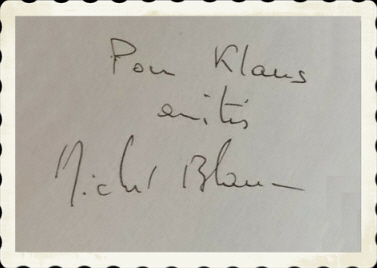 Pour Klaus
amitiés
Michel Blanc